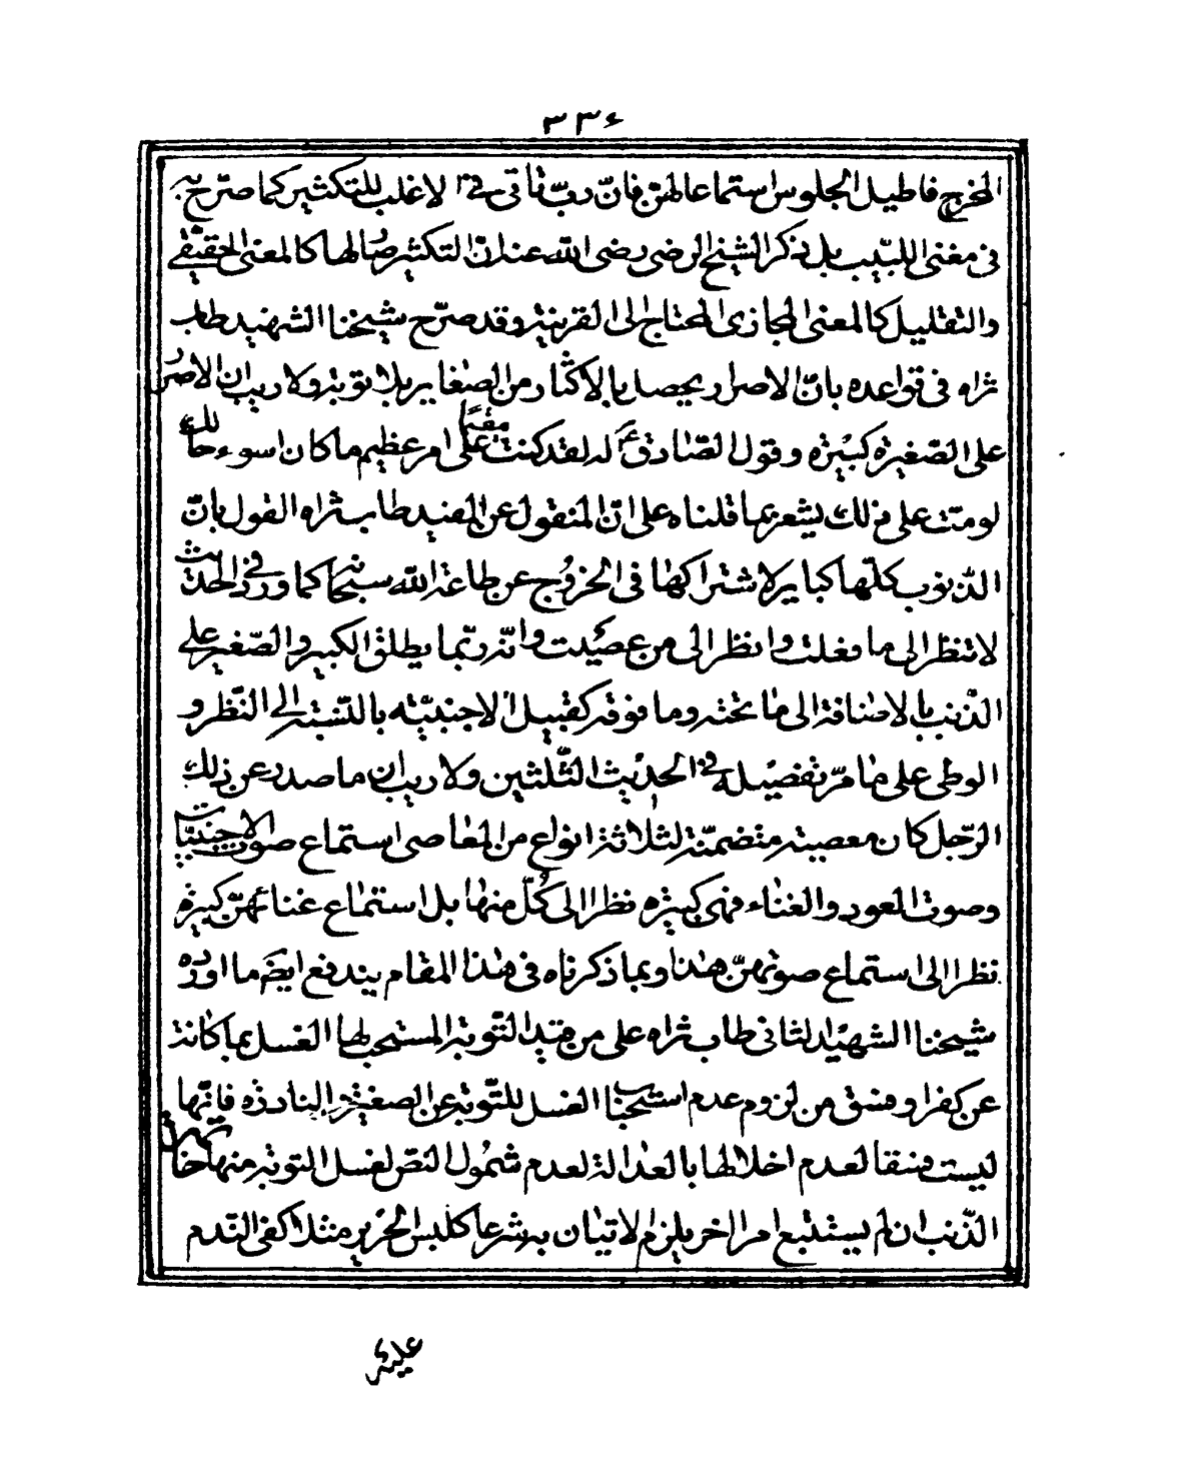 ٣٣٤
المخرج فاطيل الجلوس استماعا لهنّ فانّ ربّ تاتى فى الاغلب للتكثير كما صرّح به
فى مغنى اللبيب بل ذكر الشيخ الرضى رضى الله عنه انّ التكثير صار لها كالمعنى الحقيقى
والتقليل كالمعنى المجازى المحتاج الى القرينة وقد صرّح شيخنا الشهيد طاب
ثراه فى قواعده بانّ الاصرار يحصل بالاكثار من الصّغاير بلا توبة ولا ريب ان الاصرار
على الصّغيرة كبيرة وقول الصّادق ع له لقد كنت مقيما على امر عظيم ما كان اسوء حالك
لو متّ على ذلك يشعر بما قلناه على انّ المنقول عن المفيد طاب ثراه القول بانّ
الذّنوب كلّها كباير لاشتراكها فى الخروج عن طاعة الله سبحانه كما ورد فى الحديث
لا تنظر الى ما فعلت وانظر الى من عصيت وانّه ربّما يطلق الكبير والصّغير على
الذّنب بالاضافة الى ما تحته وما فوقه كقبيل الاجنبيّة بالنّسبة الى النّظر و
الوطى على ما مرّ تفصيله فى الحديث الثّلثين ولا ريب ان ما صدر عن ذلك
الرّجل كان معصية متضمنّة لثلاثة انواع من المعاصى استماع صوت الاجنبيّات
وصوت العود والغناء فهى كبيرة نظرا الى كلّ منها بل استماع غنائهنّ كبيرة
نظرا الى استماع صوتهنّ هذا وبما ذكرناه فى هذا المقام يندفع ايضا ما اورده
شيخنا الشهيد الثانى طاب ثراه على من قيد التّوبة المستحب لها الغسل بما كانت
عن كفر او فسق من لزوم عدم استحباب الغسل للتّوبة عن الصغيرة النادرة فانّها
ليست فسقا لعدم اخلالها بالعدالة لعدم شمول النصّ لغسل التوبة منها خاتمة
الذّنب ان لم يستتبع امرا اخر يلزم الاتيان به شرعا كلبس الحرير مثلا كفى النّدم
عليه